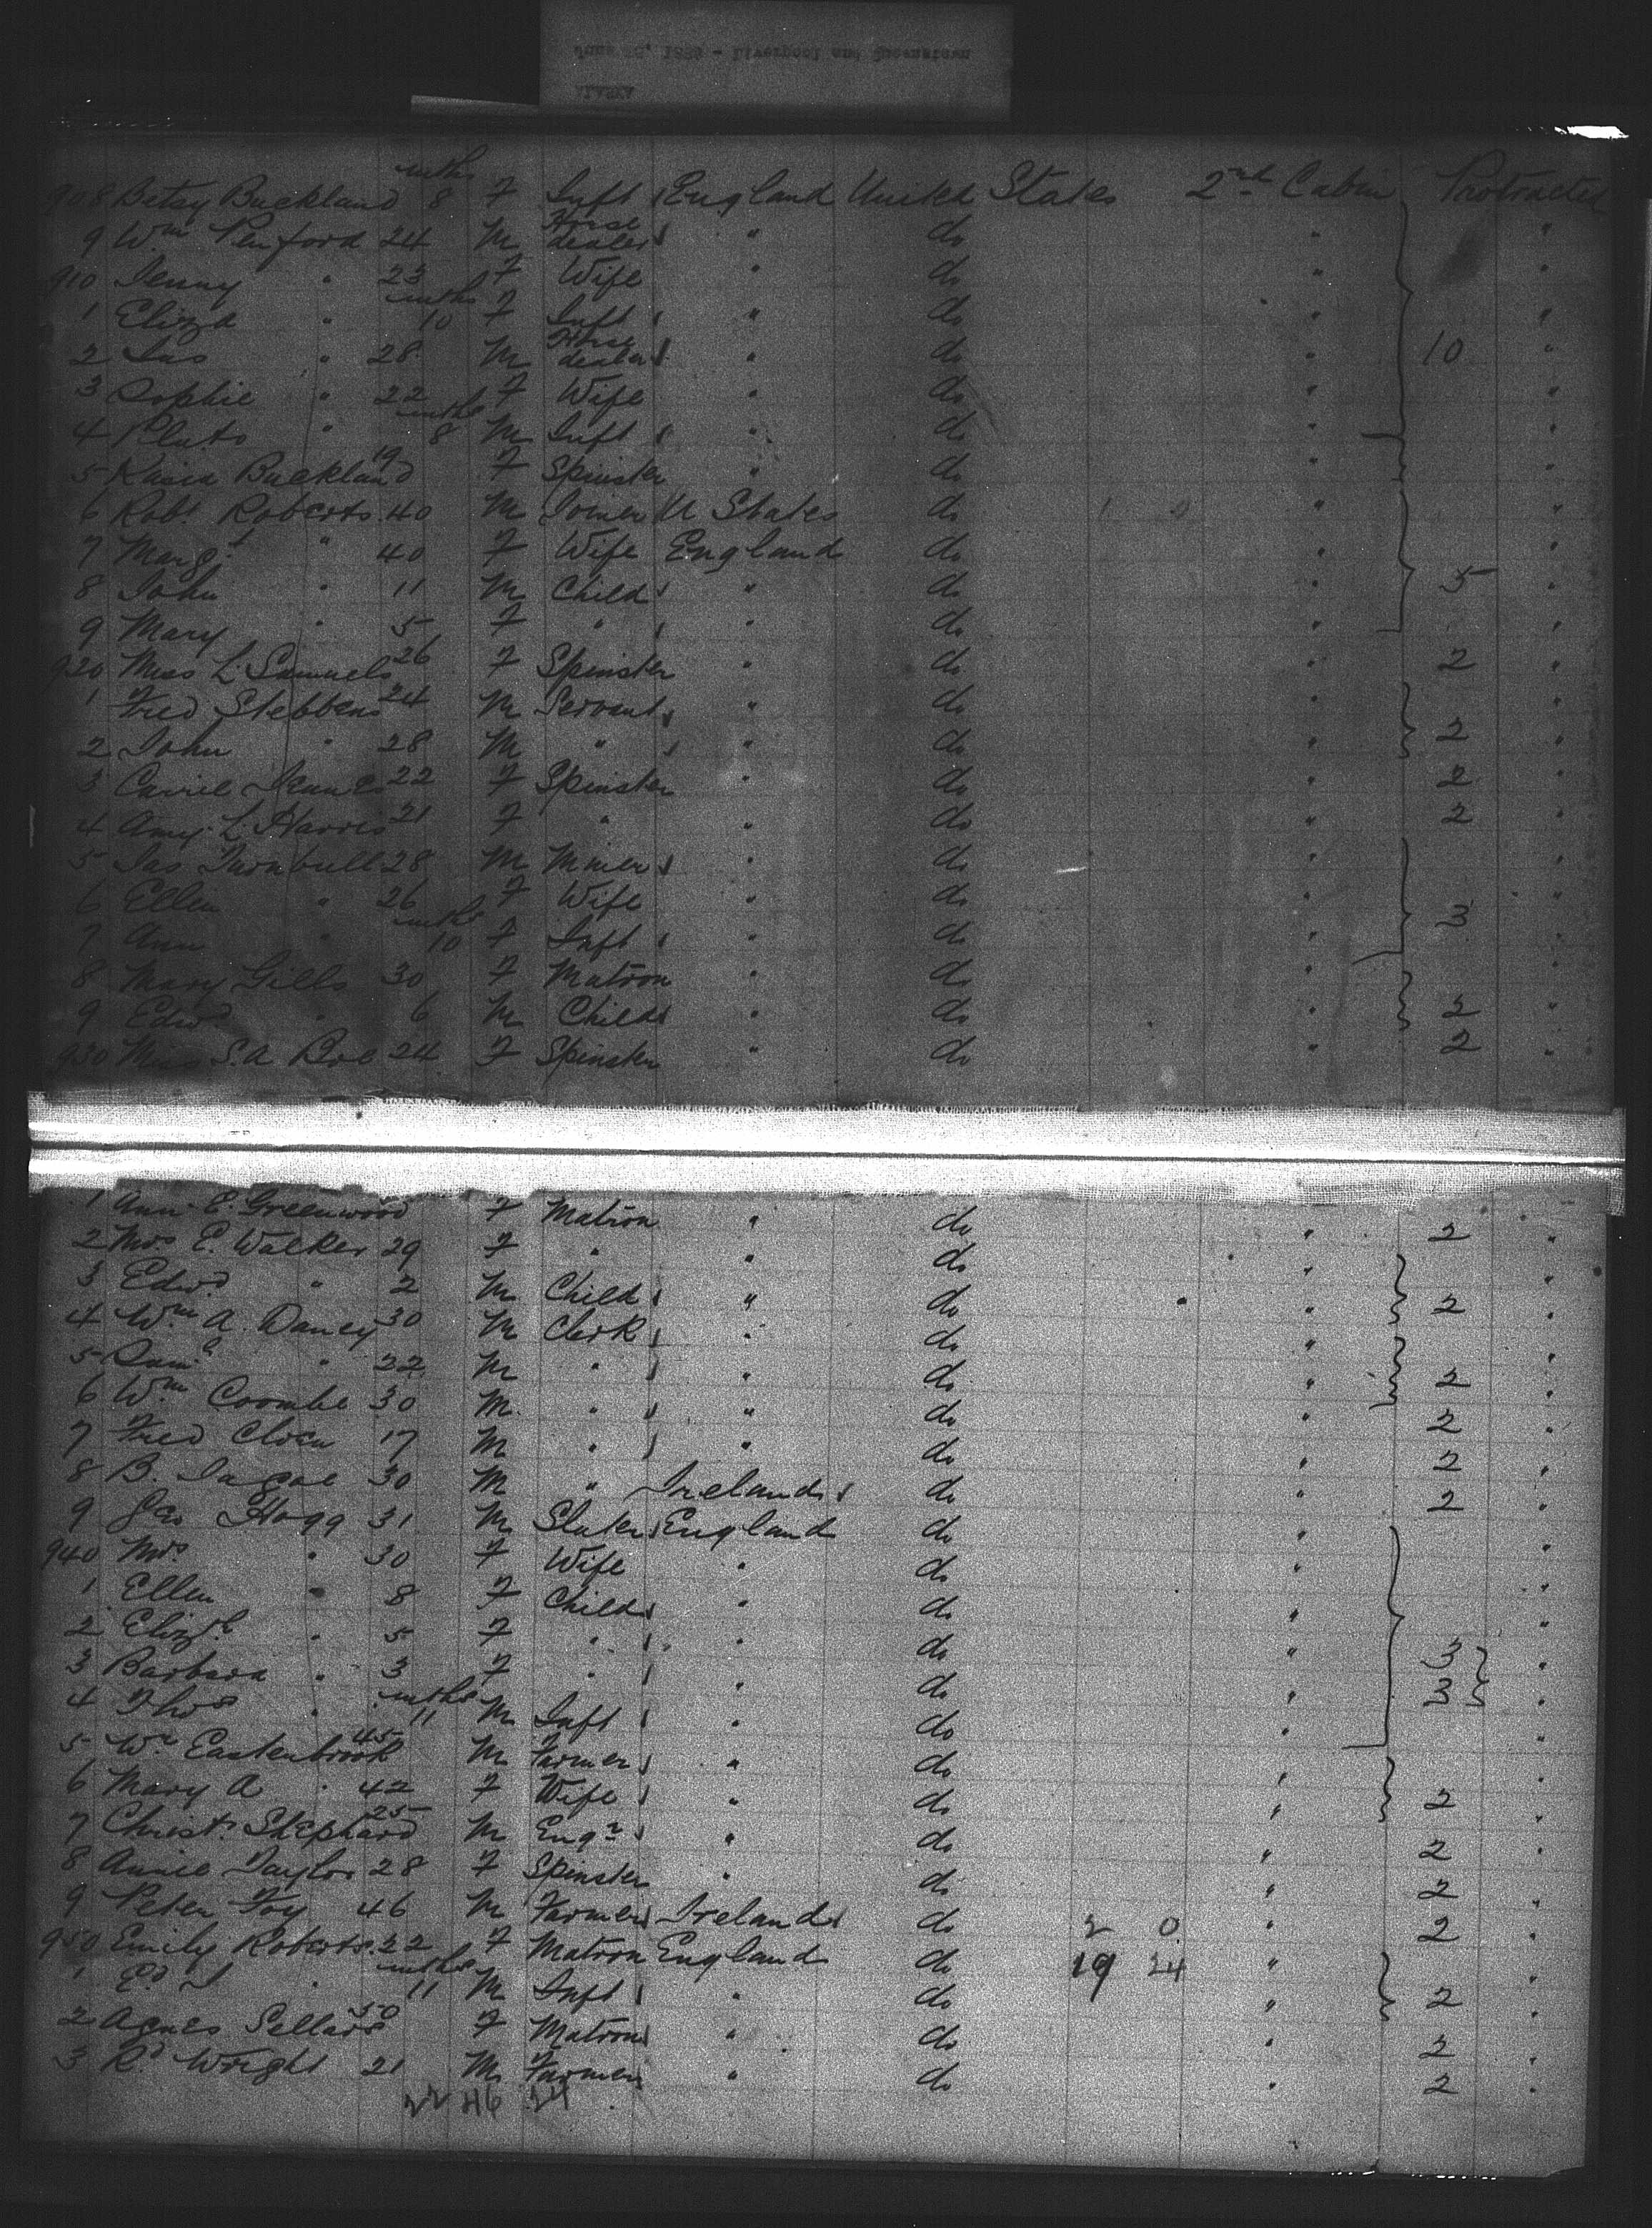 June 25, 1889 - Liverpool and Queenstown
ALASKA
908 Betsy Buckland mths 8 F Inft England United States 2nd Cabin Protracted
9 Wm Penford 24 M Horse dealer " do " "
910 Jenny " 23 F Wife " do " "
1 Eliza " mths 10 F Inft " do " "
2 Jas " 28 M Horse dealer " do " 10 "
3 Sophie " 22 F Wife " do " "
4 Pluto " mths 8 M Inft " do " "
5 Kasia Buckland 19 F Spinster " do " "
6 Robt Roberts 40 M Joiner U States do 1 0 " "
7 Margt " 40 F Wife England do " "
8 John " 11 M Child " do " 5 "
9 Mary " 5 F " " do " "
920 Miss L Samuels 26 F Spinster " do " 2 "
1 Fred Stebbens 24 M Servant " do " "
2 John " 28 M " " do " 2 "
3 Carrie 22 F Spinster " do " 2 "
4 Amy L Harris 21 F " " do " 2 "
5 Jas Turnbull 28 M Miner " do " "
6 Ellen " 26 F Wife " do " 3 "
7 Ann " mths 10 F Inft " do " "
8 Mary Gills 30 F Matron " do " "
9 Edwd " 6 M Child " do " 2 "
930 Miss S.A 24 F Spinster " do " 2 "
1 Ann E. Greenwood F Matron " do " 2 "
2 Mrs E. Walker 29 F " " do " "
3 Edwd " 2 M Child " do " 2 "
4 Wm A. Dancy 30 M Clerk " do " "
5 Saml " 22 M " " do " 2 "
6 Wm Coombe 30 M " " do " 2 "
7 Fred 17 M " " do " 2 "
8 B. Jagoe 30 M " Ireland do " 2 "
9 Geo Hogg 31 M Slater England do " "
940 Mrs " 30 F Wife " do " "
1 Ellen " 8 F Child " do " "
2 Elizth " 5 F " " do " 3 "
3 Barbara " 3 F " " do " 3 "
4 Thos " mths 11 M Inft " do " "
5 Wm Eastenbrook 45 M Farmer " do " "
6 Mary A " 42 F Wife " do " 2 "
7 Christr Shephard 25 M Engr " do " 2 "
8 Annie Taylor 28 F Spinster " do " 2 "
9 Peter Foy 46 M Farmer Ireland do 2 0 " 2 "
950 Emily Roberts 22 F Matron England do 19 24 " "
1 Ed J " mths 11 M Inft " do " 2 "
2 Agnes Sellars 50 F Matron " do " 2 "
3 Rd Wright 21 M Farmer " do " 2 "
22 46 24